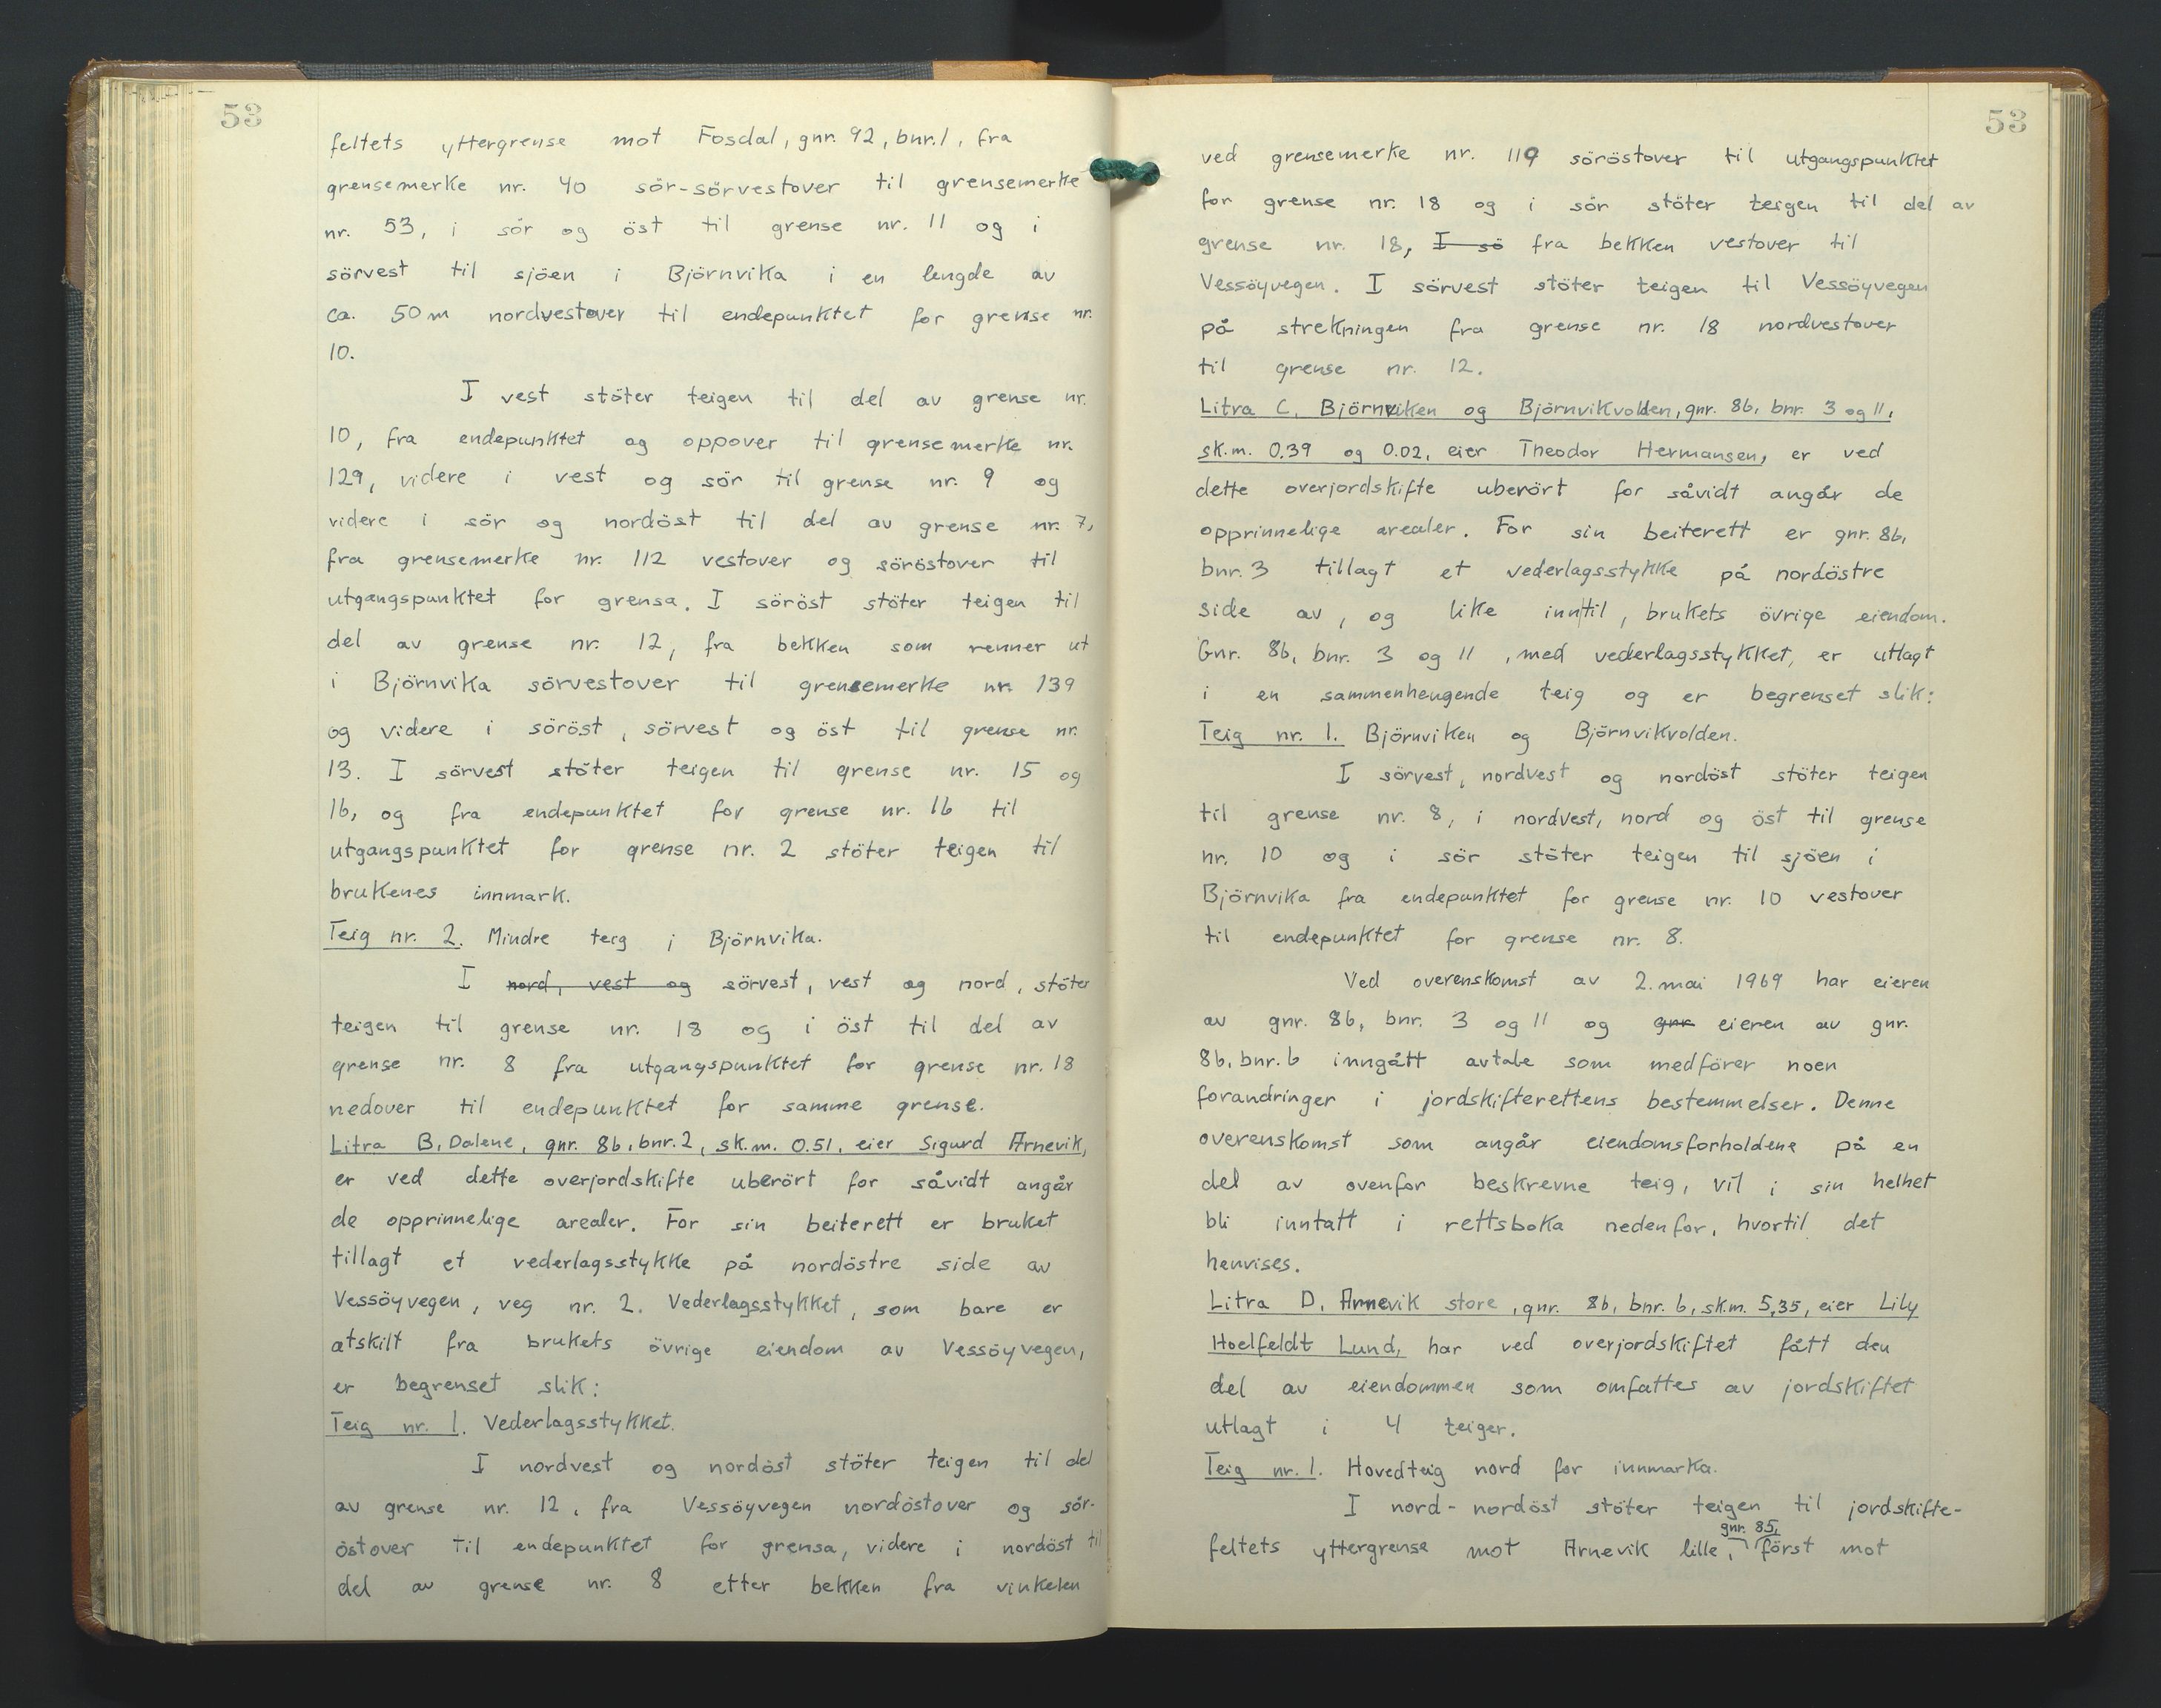 53
feltets yttergrense mot Fosdal, gnr. 92, bnr. 1, fra
grensemerke nr. 40 sör-sörvestover til grensemerke
nr. 53, i sör og öst til grense nr. 11 og i
sörvest til sjöen i Björnvika i en lengde av
ca. 50 m nordvestover til endepunktet for grense nr.
10.
I vest stöter teigen til del av grense nr.
10, fra endepunktet og oppover til grensemerke nr.
129, videre i vest og sör til grense nr. 9 og
videre i sör og nordöst til del av grense nr. 7,
fra grensemerke nr. 112 vestover og söröstover til
utgangspunktet for grensa. I söröst stöter teigen til
del av grense nr. 12, fra bekken som renner ut
i Björnvika sörvestover til grensemerke nr. 139
og videre i söröst, sörvest og öst til grense nr.
13. I sörvest stöter teigen til grense nr. 15 og
16, og fra endepunktet for grense nr. 16 til
utgangspunktet for grense nr. 2 stöter teigen til
brukenes innmark.
Teig nr. 2. Mindre teig i Björnvika.
I nord, vest og sörvest, vest og nord, stöter
teigen til grense nr. 18 og i öst til del av
grense nr. 8 fra utgangspunktet for grense nr. 18
nedover til endepunktet for samme grense.
Litra B, Dalene, gnr. 86, bnr. 2, sk.m. 0.51, eier Sigurd Arnevik,
er ved dette overjordskifte uberört for såvidt angår
de opprinnelige arealer. For sin beiterett er bruket
tillagt et vederlagsstykke på nordöstre side av
Vessöyvegen, veg nr. 2. Vederlagsstykket, som bare er
atskilt fra brukets övrige eiendom av Vessöyvegen,
er begrenset slik:
Teig nr. 1. Vederlagsstykket.
I nordvest og nordöst stöter teigen til del
av grense nr. 12, fra Vessöyvegen nordöstover og sör-
östover til endepunktet for grensa, videre i nordöst til
del av grense nr. 8 etter bekken fra vinkelen
53
ved grensemerke nr. 119 söröstover til utgangspunktet
for grense nr. 18 og i sör stöter teigen til del av
grense nr. 18, I sö fra bekken vestover til
Vessöyvegen. I sörvest stöter teigen til Vessöyvegen
på strekningen fra grense nr. 18 nordvestover
til grense nr. 12.
Litra C, Björnviken og Björnvikvolden, gnr. 86, bnr. 3 og 11,
sk.m. 0.39 og 0.02, eier Theodor Hermansen, er ved
dette overjordskifte uberört for såvidt angår de
opprinnelige arealer. For sin beiterett er gnr. 86,
bnr. 3 tillagt et vederlagsstykke på nordöstre
side av, og like inntil, brukets övrige eiendom.
Gnr. 86, bnr. 3 og 11, med vederlagsstykket, er utlagt
i en sammenhengende teig og er begrenset slik:
Teig nr. 1. Björnviken og Björnvikvolden.
I sörvest, nordvest og nordöst stöter teigen
til grense nr. 8, i nordvest, nord og öst til grense
nr. 10 og i sör stöter teigen til sjöen i
Björnvika fra endepunktet for grense nr. 10 vestover
til endepunktet for grense nr. 8.
Ved overenskomst av 2. mai 1969 har eieren
av gnr. 86, bnr. 3 og 11 og gnr eieren av gnr.
86, bnr. 6 inngått avtale som medförer noen
forandringer i jordskifterettens bestemmelser. Denne
overenskomst som angår eiendomsforholdene på en
del av ovenfor beskrevne teig, vil i sin helhet
bli inntatt i rettsboka nedenfor, hvortil det
henvises.
Litra D, Arnevik store, gnr. 86, bnr. 6, sk.m. 5,35, eier Lily
Hoelfeldt Lund, har ved overjordskiftet fått den
del av eiendommen som omfattes av jordskiftet
utlagt i 4 teiger.
Teig nr. 1. Hovedteig nord for innmarka.
I nord-nordöst stöter teigen til jordskifte-
gnr. 85,
feltets yttergrense mot Arnevik lille, först mot